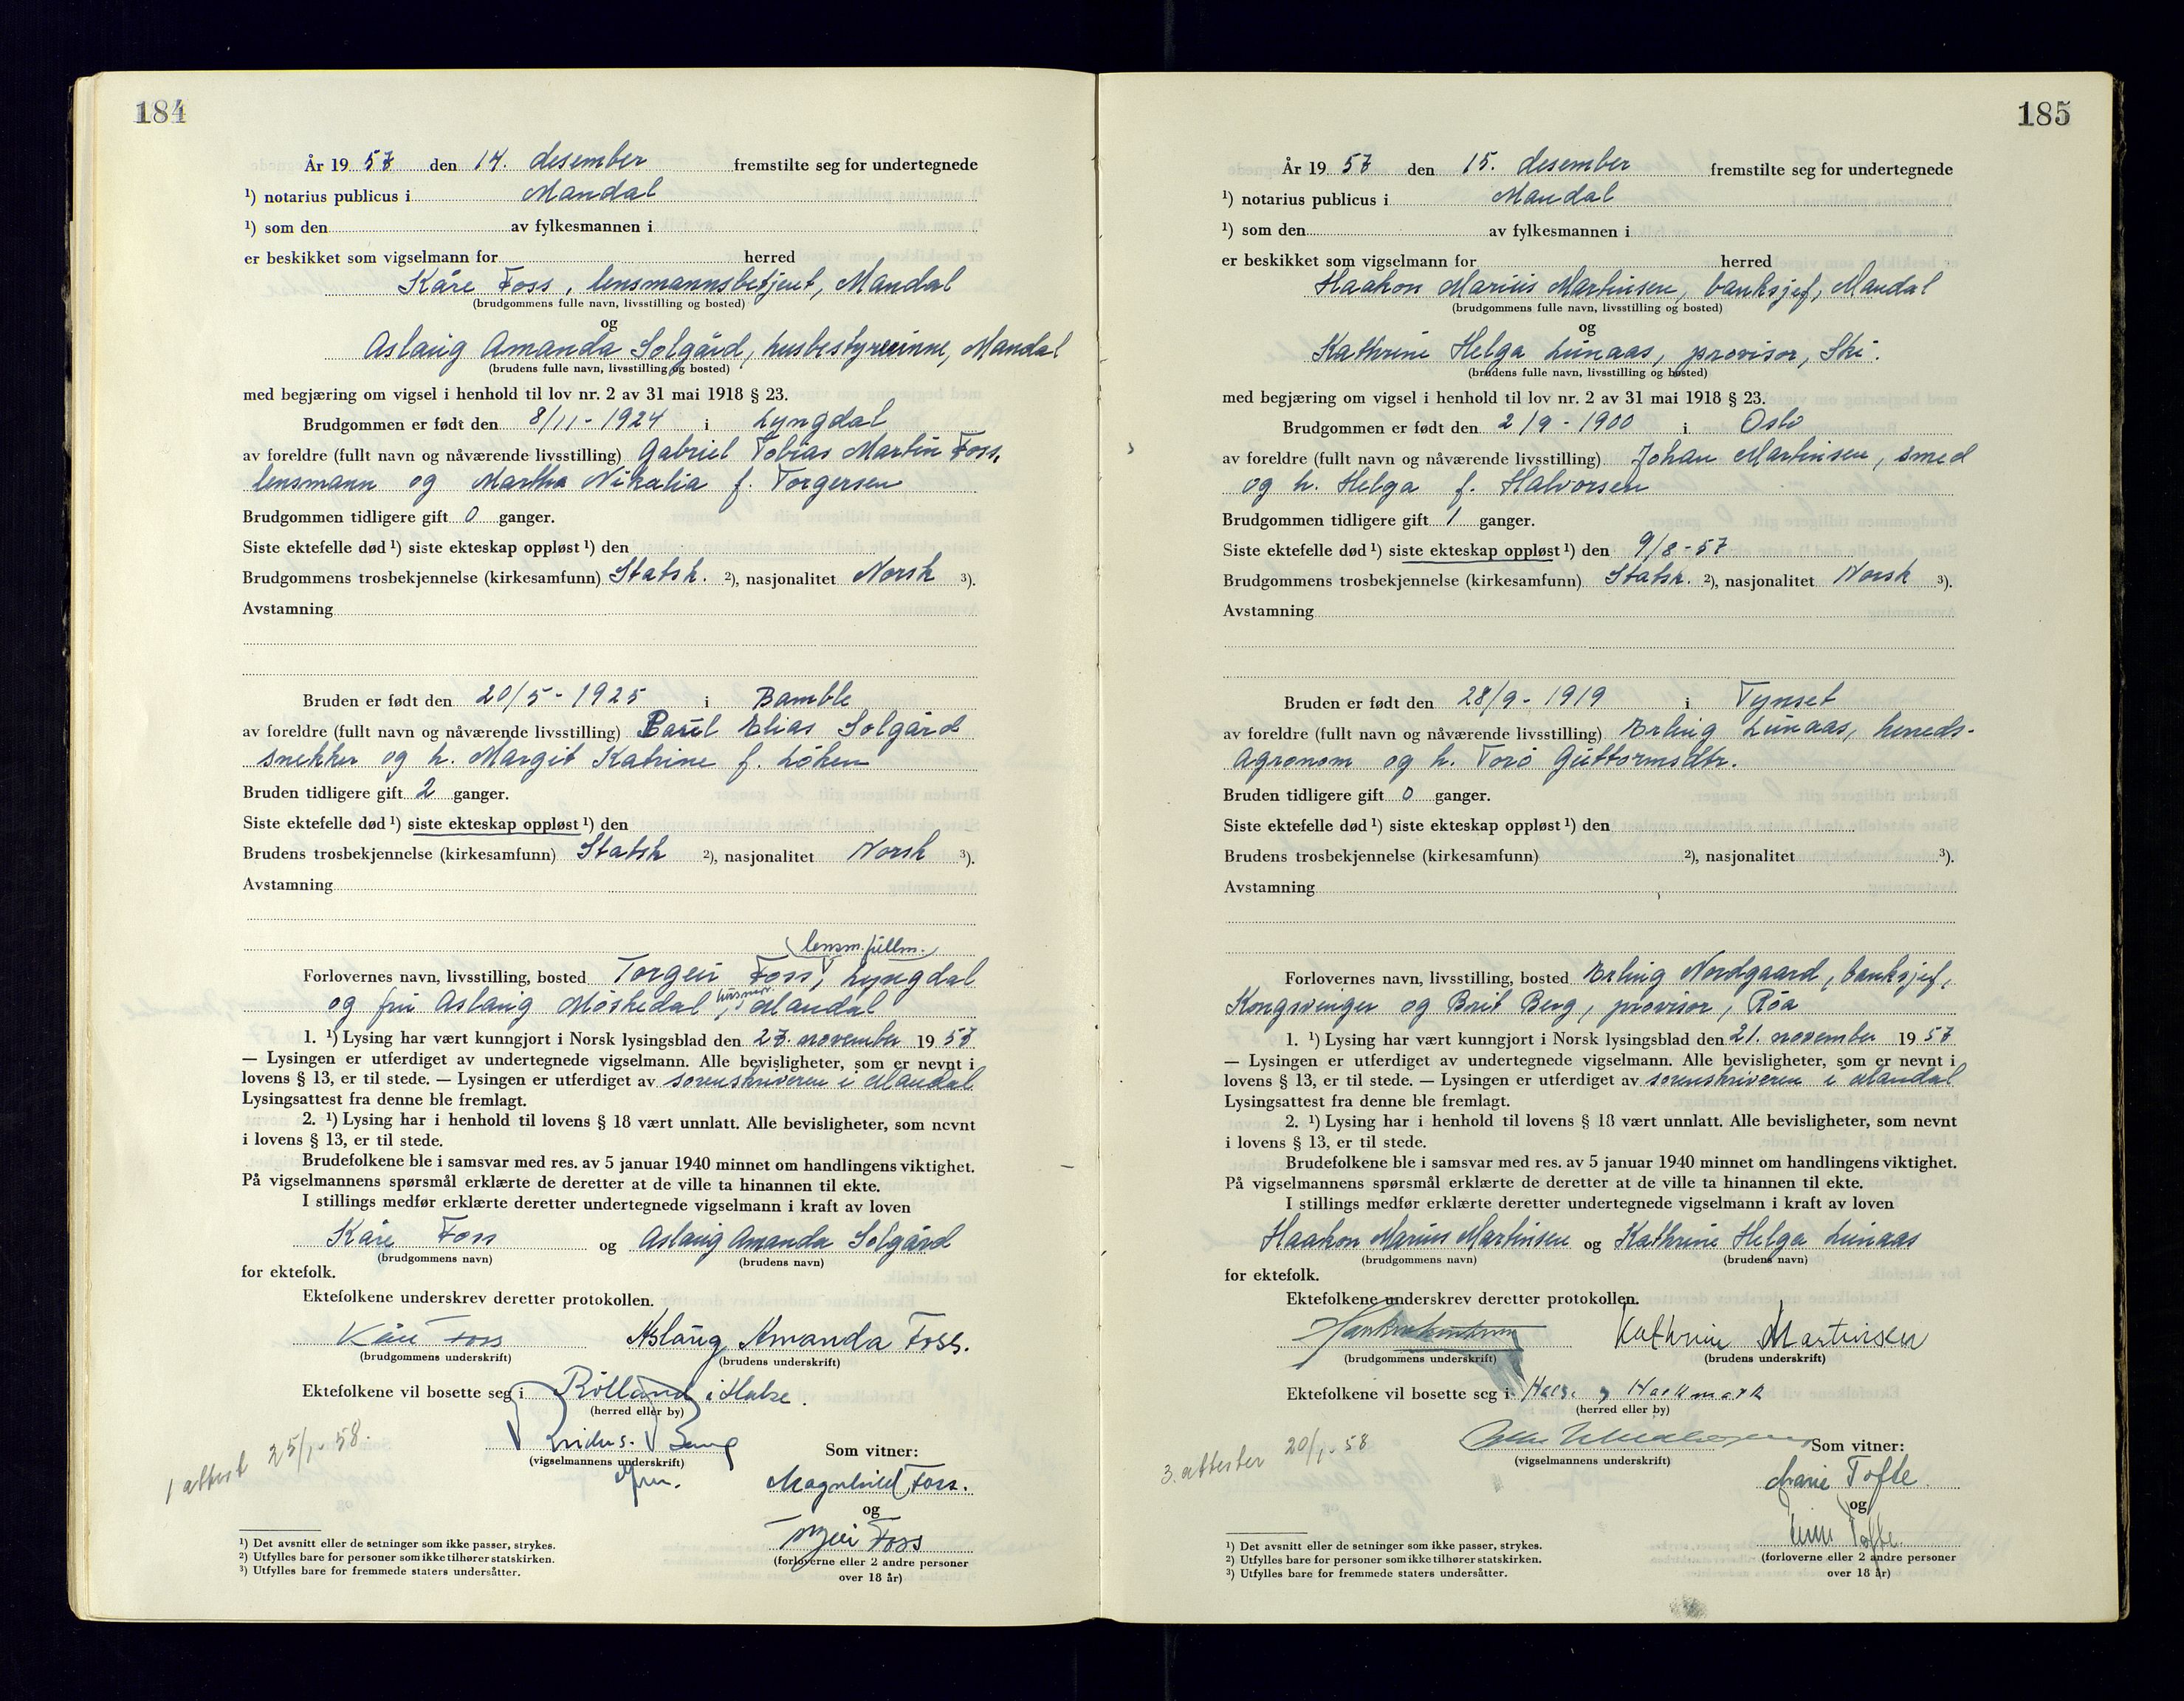 184
År 1957 den 14. desember fremstilte seg for undertegnede
¹) notarius publicus i Mandal
¹) som den av fylkesmannen i
er beskikket som vigselmann for herred
Kåre Foss, lensmannsbetjent, Mandal
(brudgommens fulle navn, livsstilling og bosted)
og
Aslaug Amanda Solgård, husbestyrerinne, Mandal
(brudens fulle navn, livsstilling og bosted)
med begjæring om vigsel i henhold til lov nr. 2 av 31 mai 1918 § 23.
Brudgommen er født den 8/11-1924 i Lyngdal
av foreldre (fullt navn og nåværende livsstilling) Gabriel Tobias Martin Foss,
lensmann og Martha Nikalia f. Torgersen
Brudgommen tidligere gift 0 ganger.
Siste ektefelle død ¹) siste ekteskap oppløst ¹) den
Brudgommens trosbekjennelse (kirkesamfunn) Statsk. ²), nasjonalitet Norsk ³).
Avstamning
Bruden er født den 20/5-1925 i Bamble
av foreldre (fullt navn og nåværende livsstilling) Paul Elias Solgård
snekker og h. Margit Katrine f. Löken
Bruden tidligere gift 2 ganger.
Siste ektefelle død ¹) siste ekteskap oppløst ¹) den
Brudens trosbekjennelse (kirkesamfunn) Statsk ²), nasjonalitet Norsk ³).
Avstamning
(lensm.fullm.)
Forlovernes navn, livsstilling, bosted Torgeir Foss, Lyngdal
og fru Aslaug Möskedal, husmor, Mandal
1. ¹) Lysing har vært kunngjort i Norsk lysingsblad den 27. november 1957
— Lysingen er utferdiget av undertegnede vigselmann. Alle bevisligheter, som er nevnt i
lovens § 13, er til stede. — Lysingen er utferdiget av sorenskriveren i Mandal
Lysingsattest fra denne ble fremlagt.
2. ¹) Lysing har i henhold til lovens § 18 vært unnlatt. Alle bevisligheter, som nevnt
i lovens § 13, er til stede.
Brudefolkene ble i samsvar med res. av 5 januar 1940 minnet om handlingens viktighet.
På vigselmannens spørsmål erklærte de deretter at de ville ta hinannen til ekte.
I stillings medfør erklærte deretter undertegnede vigselmann i kraft av loven
Kåre Foss og Aslaug Amanda Solgård
(brudgommens navn) (brudens navn)
for ektefolk.
Ektefolkene underskrev deretter protokollen.
Kåre Foss Aslaug Amanda Foss.
(brudgommens underskrift) (brudens underskrift)
Ektefolkene vil bosette seg i Rölland i Halse.
(herred eller by)
1 attest 25/1-58.
(vigselmannens underskrift)
Som vitner:
Magnhild Foss.
og
Torgeir Foss
(forloverne eller 2 andre personer
over 18 år)
¹) Det avsnitt eller de setninger som ikke passer, strykes.
²) Utfylles bare for personer som ikke tilhører statskirken.
³) Utfylles bare for fremmede staters undersåtter.
185
År 1957 den 15. desember fremstilte seg for undertegnede
¹) notarius publicus i Mandal
¹) som den av fylkesmannen i
er beskikket som vigselmann for herred
Haakon Marius Martinsen, banksjef, Mandal
(brudgommens fulle navn, livsstilling og bosted)
og
Kathrine Helga Lunaas, provisor, Ski.
(brudens fulle navn, livsstilling og bosted)
med begjæring om vigsel i henhold til lov nr. 2 av 31 mai 1918 § 23.
Brudgommen er født den 2/9-1900 i Oslo
av foreldre (fullt navn og nåværende livsstilling) Johan Martinsen, smed
og h. Helga f. Halvorsen
Brudgommen tidligere gift 1 ganger.
Siste ektefelle død ¹) siste ekteskap oppløst ¹) den 9/8-57
Brudgommens trosbekjennelse (kirkesamfunn) Statsk. ²), nasjonalitet Norsk ³).
Avstamning
Bruden er født den 28/9-1919 i Tynset
av foreldre (fullt navn og nåværende livsstilling) Erling Lunaas, herreds-
Agronom og h. Toro Guttormsdtr.
Bruden tidligere gift 0 ganger.
Siste ektefelle død ¹) siste ekteskap oppløst ¹) den
Brudens trosbekjennelse (kirkesamfunn) ²), nasjonalitet ³).
Avstamning
Forlovernes navn, livsstilling, bosted Erling Nordgaard, banksjef,
Kongsvinger og Brit Berg, provisor, Röa
1. ¹) Lysing har vært kunngjort i Norsk lysingsblad den 21. november 1957
— Lysingen er utferdiget av undertegnede vigselmann. Alle bevisligheter, som er nevnt i
lovens § 13, er til stede. — Lysingen er utferdiget av sorenskriveren i Mandal
Lysingsattest fra denne ble fremlagt.
2. ¹) Lysing har i henhold til lovens § 18 vært unnlatt. Alle bevisligheter, som nevnt
i lovens § 13, er til stede.
Brudefolkene ble i samsvar med res. av 5 januar 1940 minnet om handlingens viktighet.
På vigselmannens spørsmål erklærte de deretter at de ville ta hinannen til ekte.
I stillings medfør erklærte deretter undertegnede vigselmann i kraft av loven
Haakon Marius Martinsen og Kathrine Helga Lunaas
(brudgommens navn) (brudens navn)
for ektefolk.
Ektefolkene underskrev deretter protokollen.
Kathrine Martinsen
(brudgommens underskrift) (brudens underskrift)
Ektefolkene vil bosette seg i Halse og Harkmark
(herred eller by)
3. attester 20/1-58
(vigselmannens underskrift)
Som vitner:
Marie Tofte
og
Tofte
(forloverne eller 2 andre personer
over 18 år)
¹) Det avsnitt eller de setninger som ikke passer, strykes.
²) Utfylles bare for personer som ikke tilhører statskirken.
³) Utfylles bare for fremmede staters undersåtter.